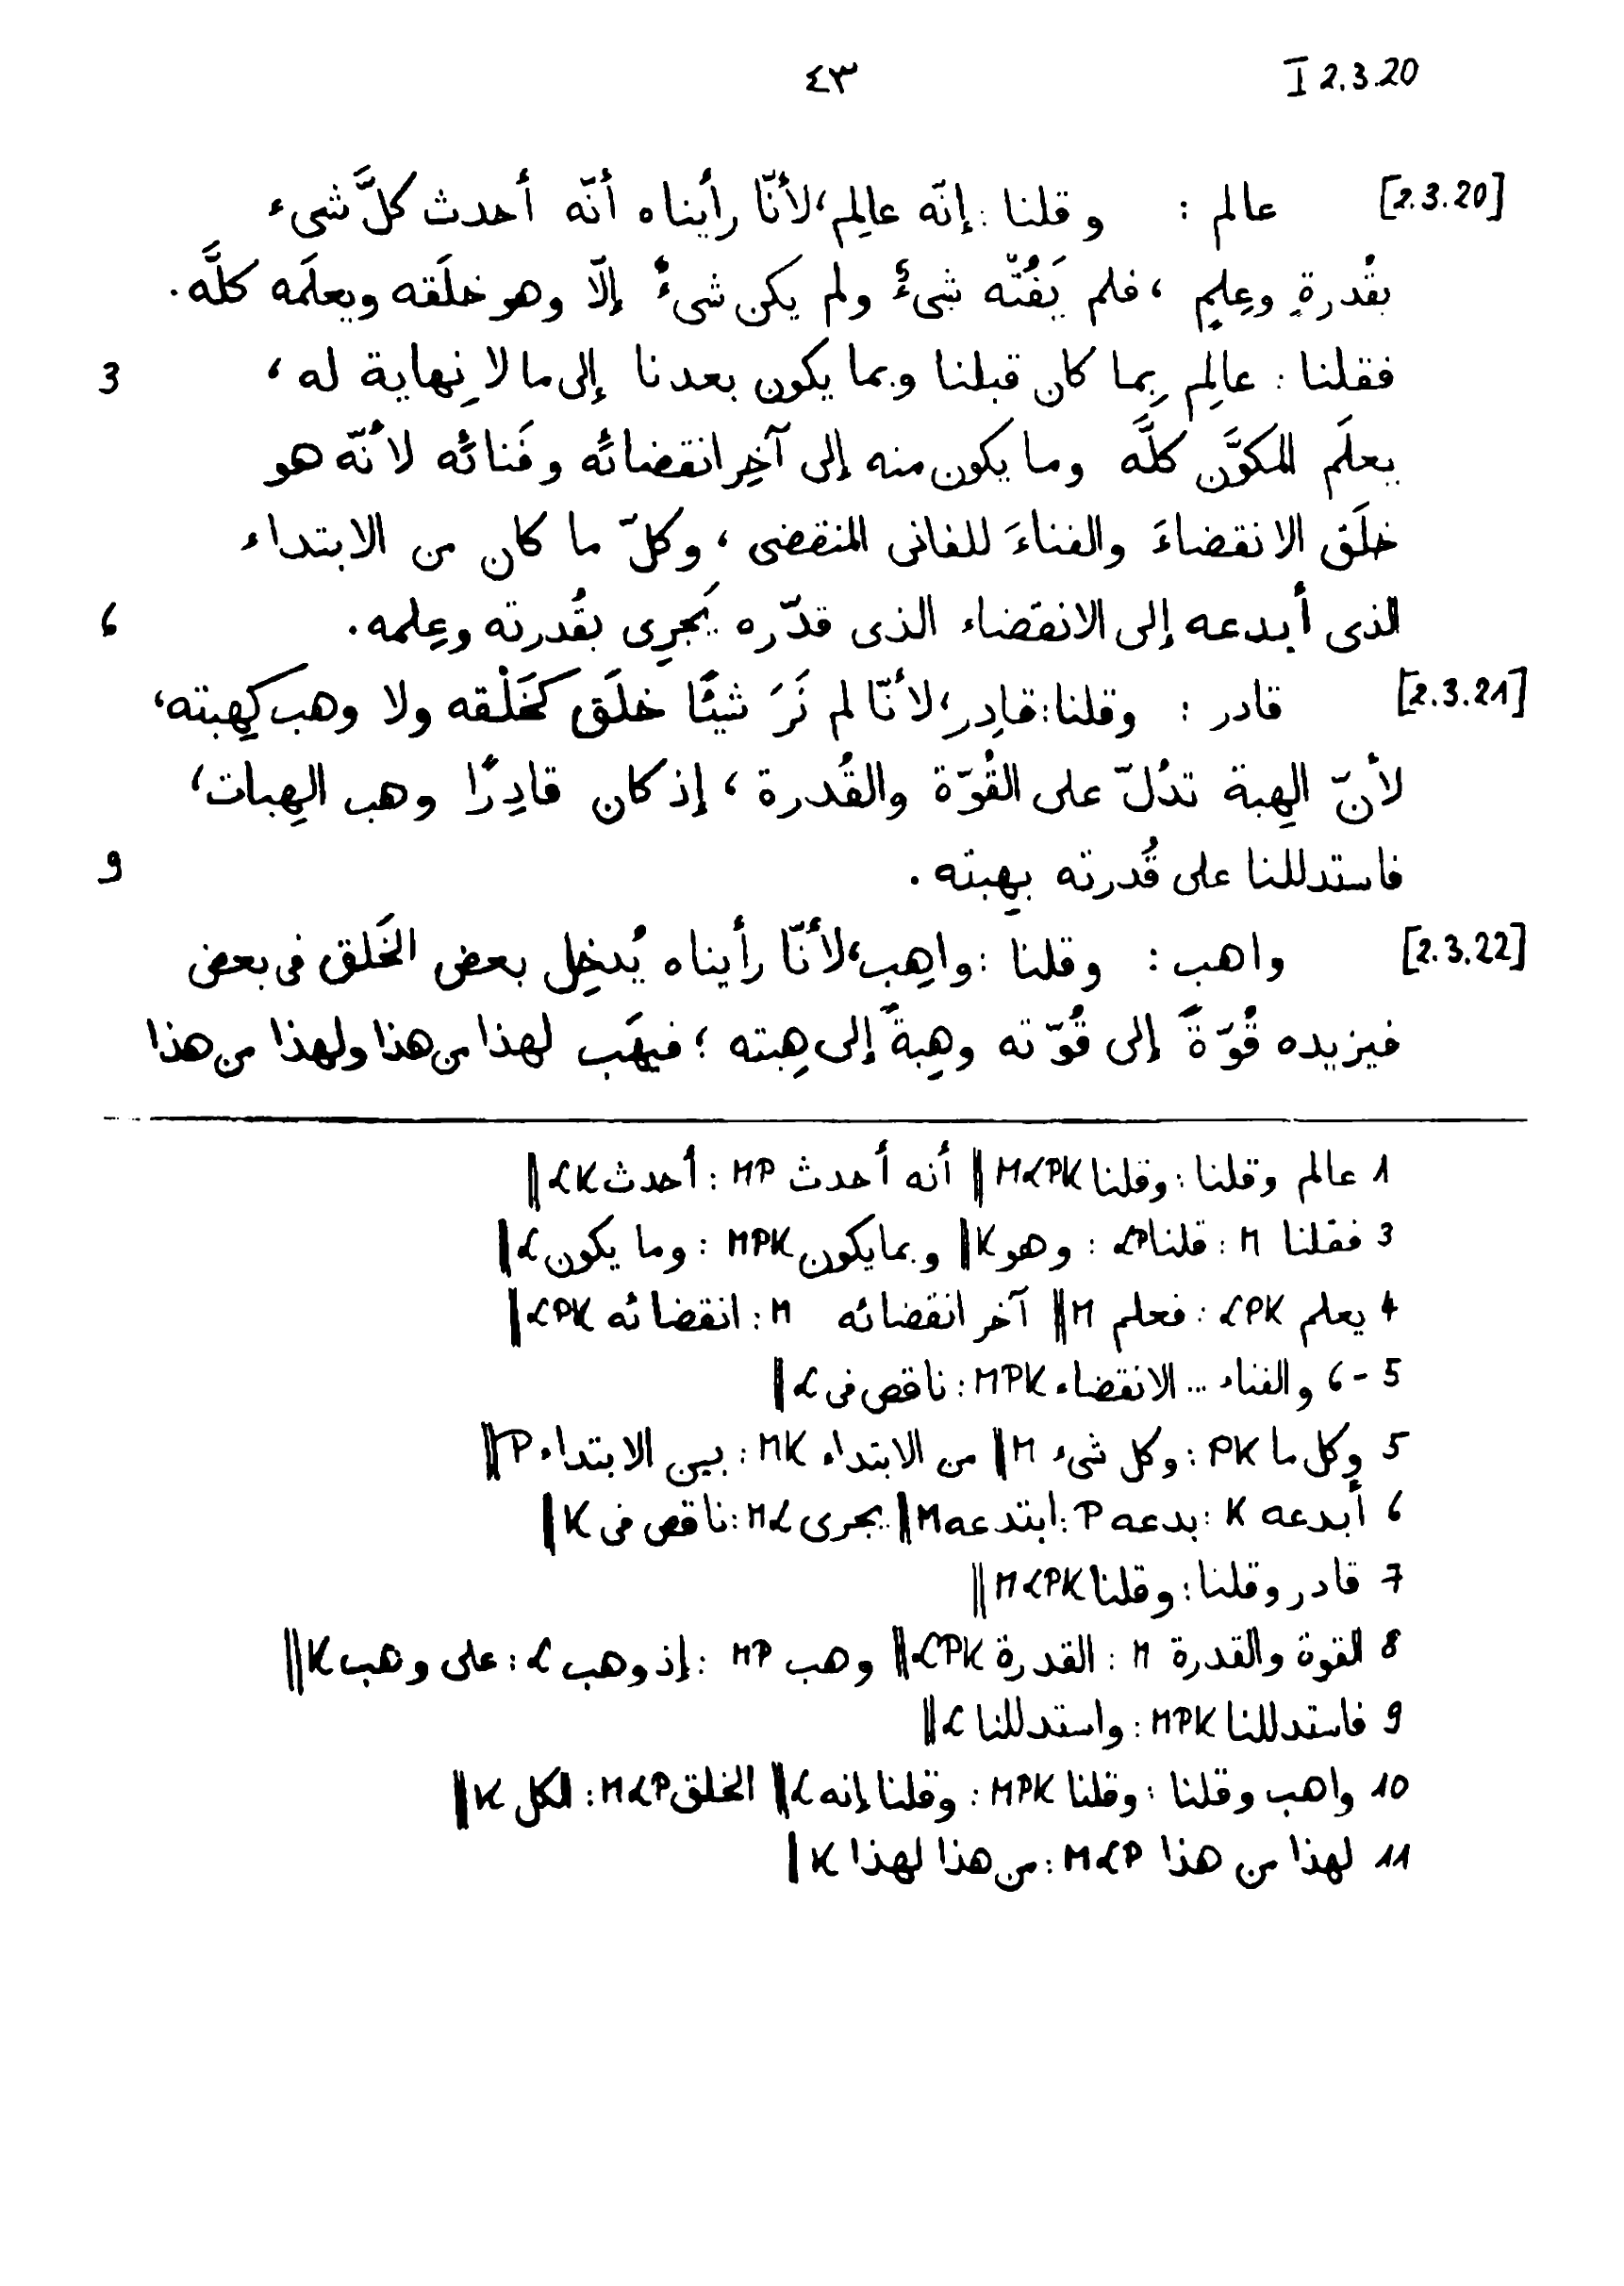 ٤٣ I 2.3.20
[2.3.20] عالم : وقلنا : إنّه عالِم، لأنّا رأيناه أنّه أحدث كلَّ شىء
بقُدرةٍ وعِلمٍ ، فلم يَفُتْه شىءٌ ولم يكن شىءٌ إلّا وهو خلَقه ويعلَمه كلَّه .
فقلنا : عالِم بِما كان قبلنا وبما يكون بعدنا إلى ما لا نِهاية له ، 3
يعلَم المكوَّن كلَّه وما يكون منه إلى آخِر انقضائه وفَنائه لأنّه هو
خلَق الانقضاءَ والفناءَ للفانى المنقضى ، وكلّ ما كان من الابتداء
الذى أبدعه إلى الانقضاء الذى قدّره يَجرِى بقُدرته وعِلمه . 6
[2.3.21] قادر : وقلنا : قادِر، لأنّا لم نَرَ شيئًا خلَق كخَلْقه ولا وهب كهِبته،
لأنّ الهِبة تدُلّ على القُوّة والقُدرة ، إذ كان قادِرًا وهب الهِبات،
فاستدللنا على قُدرته بهِبته . 9
[2.3.22] واهب : وقلنا : واهِب، لأنّا رأيناه يُدخِل بعض الخَلق فى بعض
فيزيده قُوّةً إلى قُوّته وهِبةً إلى هِبته ؛ فيهَب لهذا من هذا ولهذا من هذا
1 عالم وقلنا : وقلنا MLPK || أنه أحدث MP : أحدث LK ||
3 فقلنا M : قلنا LP : وهو K || وبما يكون MPK : وما يكون L ||
4 يعلم LPK : فعلم M || آخر انقضائه M : انقضائه LPK ||
5-6 والفناء ... الانقضاء MPK : ناقص فى L ||
5 وكل ما PK : وكل شىء M || من الابتداء MK : بين الابتداء P ||
6 أبدعه K : بدعه P : ابتدعه M || يجرى ML : ناقص فى K ||
7 قادر وقلنا : وقلنا MLPK ||
8 القوة والقدرة M : القدرة LPK || وهب MP : إذ وهب L : على وهب K ||
9 فاستدللنا MPK : واستدللنا L ||
10 واهب وقلنا : وقلنا MPK : وقلنا إنه L || الخلق MLP : الكل K ||
11 لهذا من هذا MLP : من هذا لهذا K ||